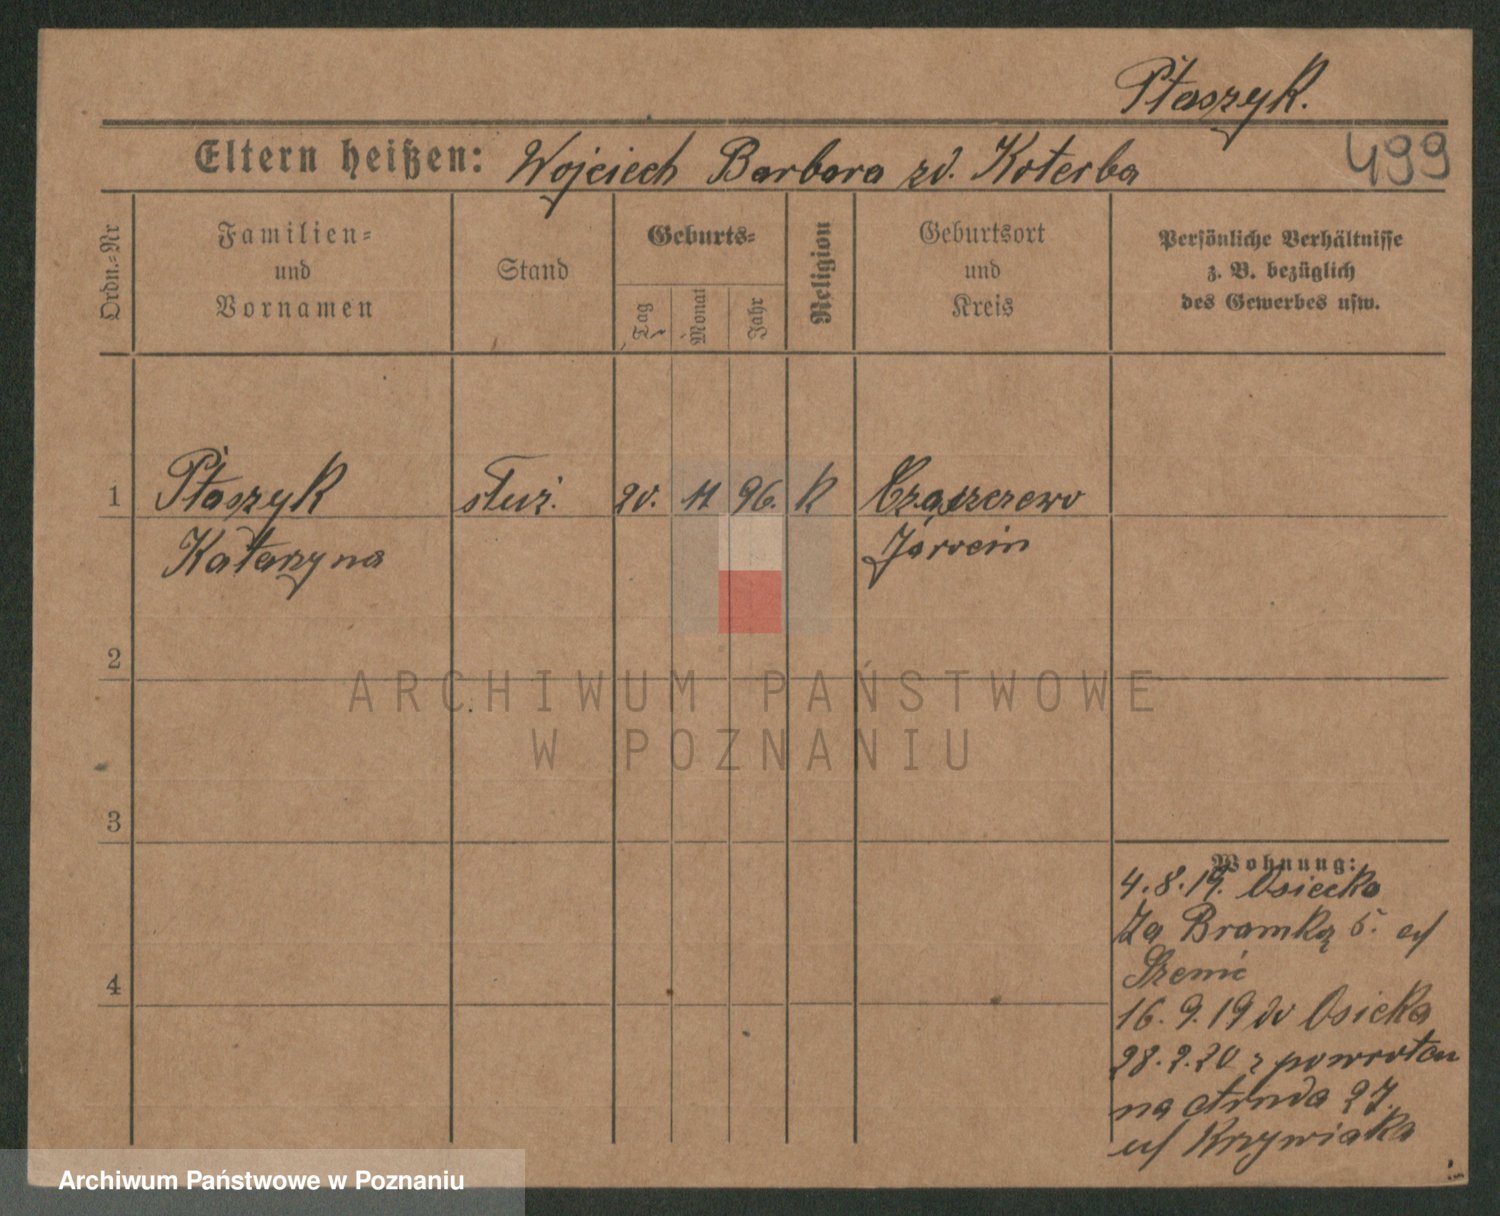 Ptaszyk.
Eltern heißen: Wojciech Barbara zd. Koterba
499
Ordn.-Nr
Familien-
und
Vornamen
Stand
Geburts-
Tag
Monat
Jahr
Religion
Geburtsort
und
Kreis
Persönliche Verhältnisse
z. B. bezüglich
des Gewerbes usw.
1 Ptaszyk służ. 20. 11 96. K
Katarzyna Jarocin
2
3
4
ARCHIWUM PAŃSTWOWE
W POZNANIU
Wohnung:
4.8.19. Osiecka
Za Bramką 5.
16.9.19 do Osieka
28.2.20 z powrotem
na
Archiwum Państwowe w Poznaniu